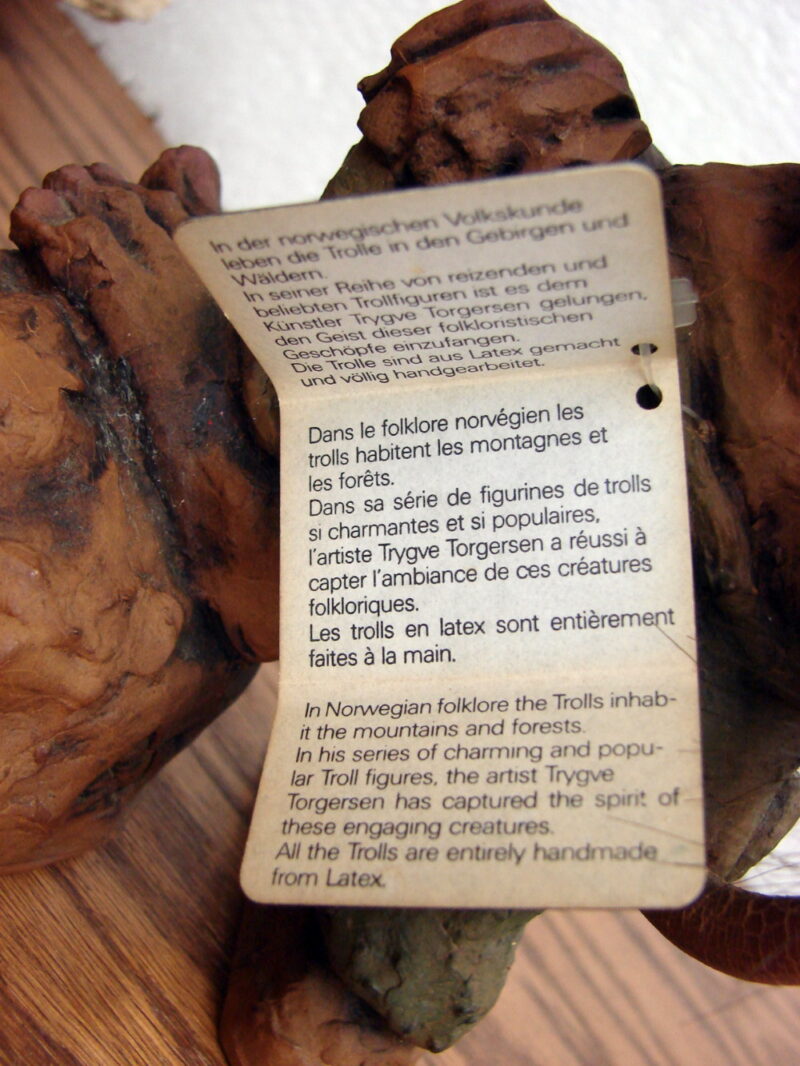 In der norwegischen Volkskunde
leben die Trolle in den Gebirgen und
Wäldern.
In seiner Reihe von reizenden und
beliebten Trollfiguren ist es dem
Künstler Trygve Torgersen gelungen,
den Geist dieser folkloristischen
Geschöpfe einzufangen.
Die Trolle sind aus Latex gemacht
und völlig handgearbeitet.
Dans le folklore norvégien les
trolls habitent les montagnes et
les forêts.
Dans sa série de figurines de trolls
si charmantes et si populaires,
l'artiste Trygve Torgersen a réussi à
capter l'ambiance de ces créatures
folkloriques.
Les trolls en latex sont entièrement
faites à la main.
In Norwegian folklore the Trolls inhab-
it the mountains and forests.
In his series of charming and popu-
lar Troll figures, the artist Trygve
Torgersen has captured the spirit of
these engaging creatures.
All the Trolls are entirely handmade
from Latex.